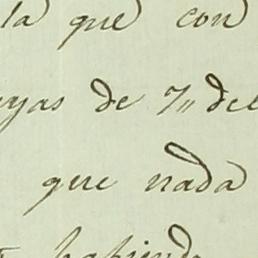 la que con
yas de 7" del
que nada
habiendo